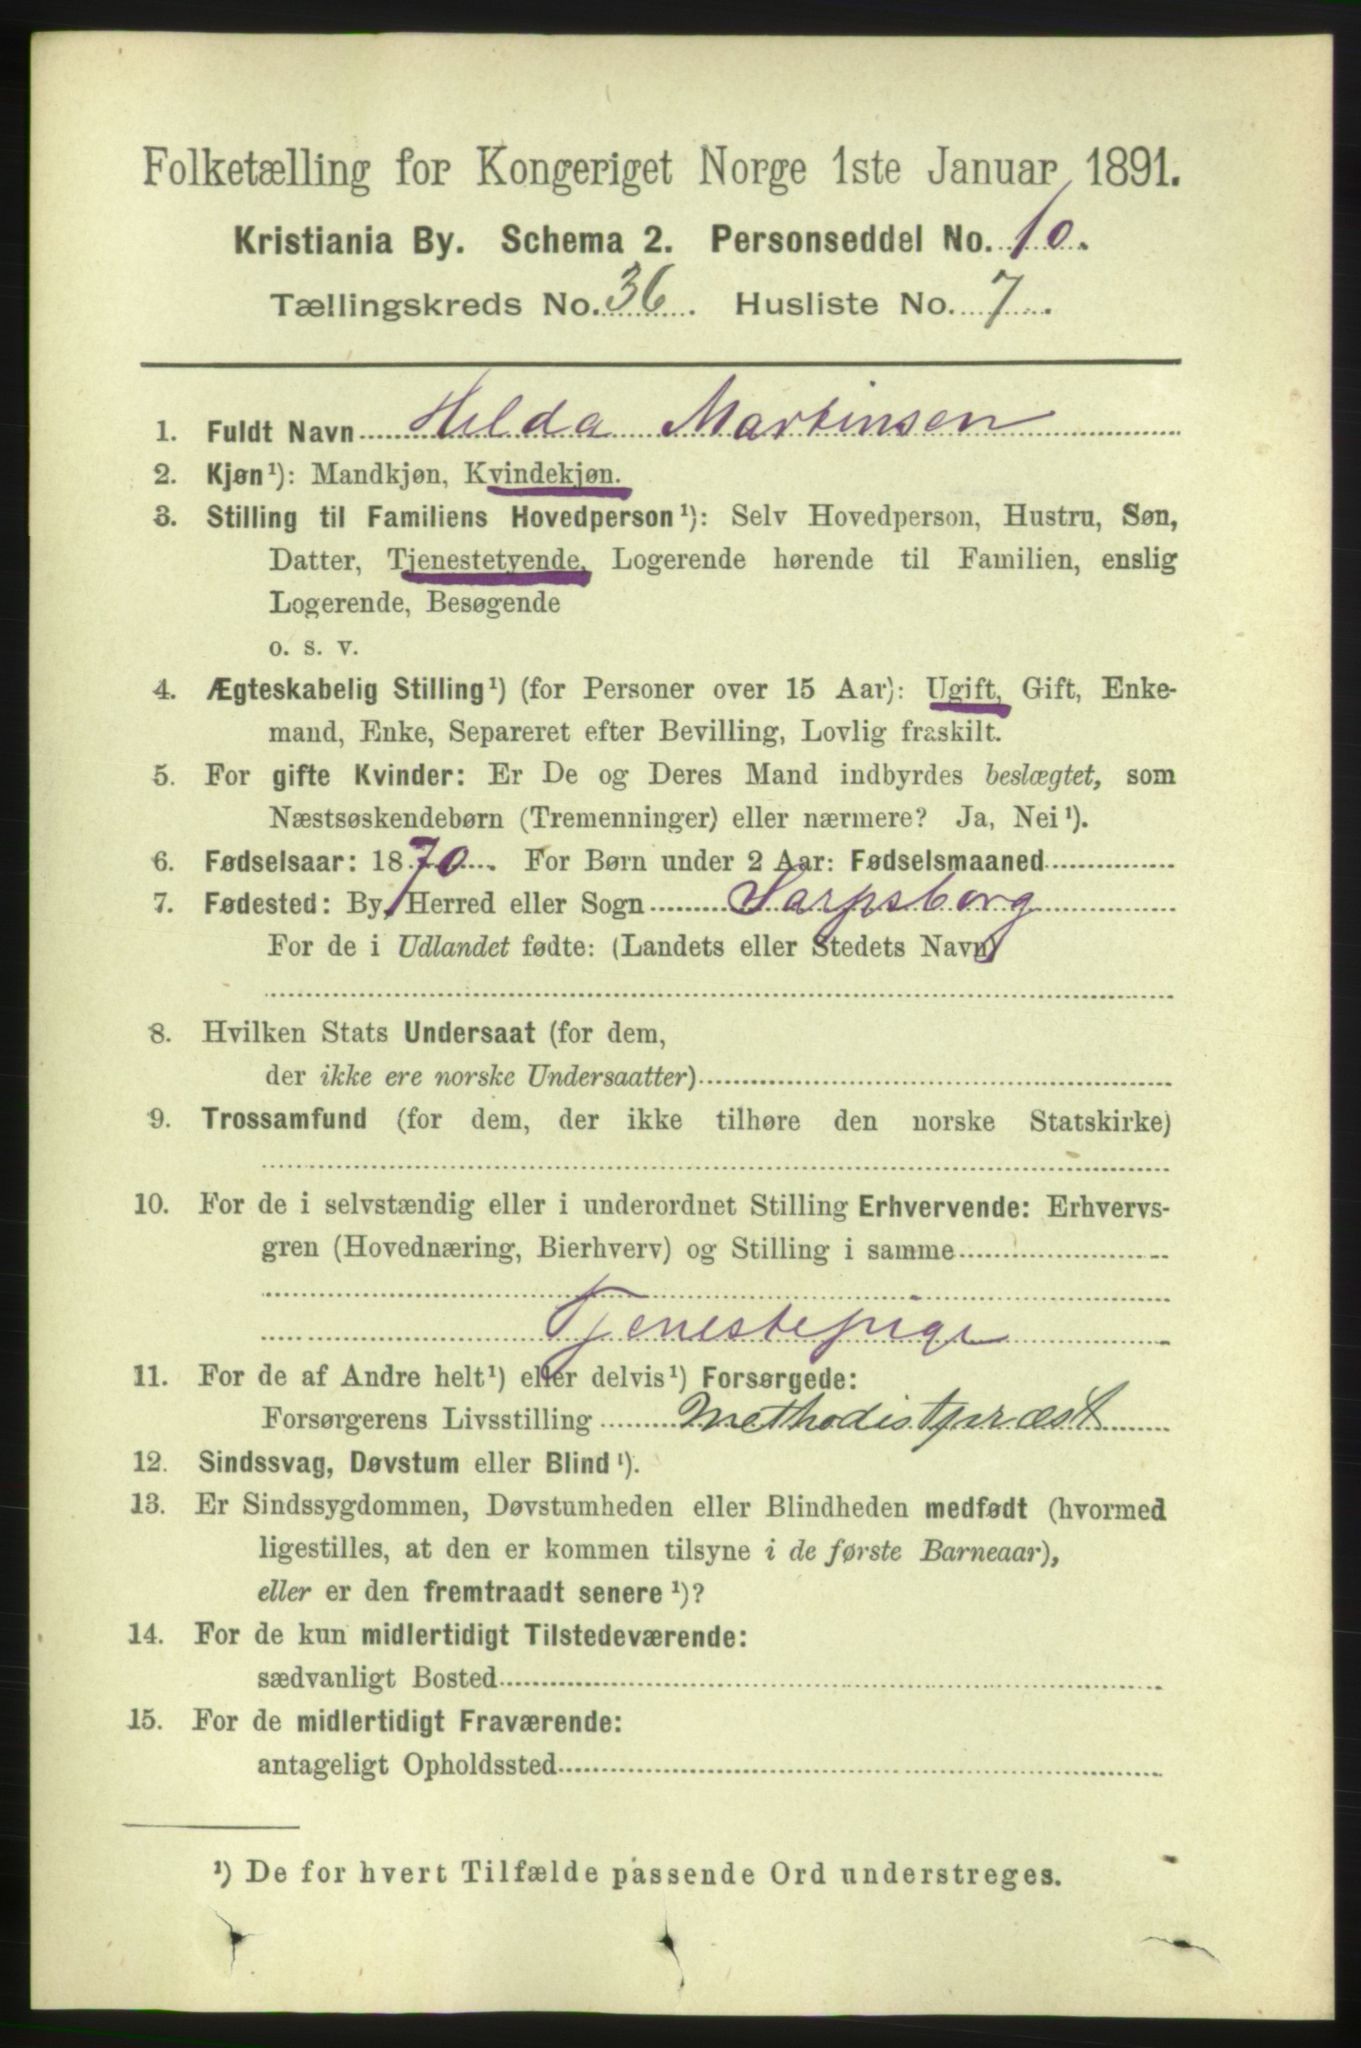 Folketælling for Kongeriget Norge 1ste Januar 1891.
Kristiania By. Schema 2. Personseddel No. 10.
Tællingskreds No. 36. Husliste No. 7.
1. Fuldt Navn Hilda Martinsen
2. Kjøn¹): Mandkjøn, Kvindekjøn.
3. Stilling til Familiens Hovedperson¹): Selv Hovedperson, Hustru, Søn,
Datter, Tjenestetyende, Logerende hørende til Familien, enslig
Logerende, Besøgende
o. s. v.
4. Ægteskabelig Stilling¹) (for Personer over 15 Aar): Ugift, Gift, Enke-
mand, Enke, Separeret efter Bevilling, Lovlig fraskilt.
5. For gifte Kvinder: Er De og Deres Mand indbyrdes beslægtet, som
Næstsøskendebørn (Tremenninger) eller nærmere? Ja, Nei¹).
6. Fødselsaar: 1870. For Børn under 2 Aar: Fødselsmaaned
7. Fødested: By, Herred eller Sogn Sarpsborg
For de i Udlandet fødte: (Landets eller Stedets Navn)
8. Hvilken Stats Undersaat (for dem,
der ikke ere norske Undersaatter)
9. Trossamfund (for dem, der ikke tilhøre den norske Statskirke)
10. For de i selvstændig eller i underordnet Stilling Erhvervende: Erhvervs-
gren (Hovednæring, Bierhverv) og Stilling i samme
Tjenestepige
11. For de af Andre helt¹) eller delvis¹) Forsørgede:
Forsørgerens Livsstilling Methodistpræst
12. Sindssvag, Døvstum eller Blind¹).
13. Er Sindssygdommen, Døvstumheden eller Blindheden medfødt (hvormed
ligestilles, at den er kommen tilsyne i de første Barneaar),
eller er den fremtraadt senere¹)?
14. For de kun midlertidigt Tilstedeværende:
sædvanligt Bosted
15. For de midlertidigt Fraværende:
antageligt Opholdssted
¹) De for hvert Tilfælde passende Ord understreges.